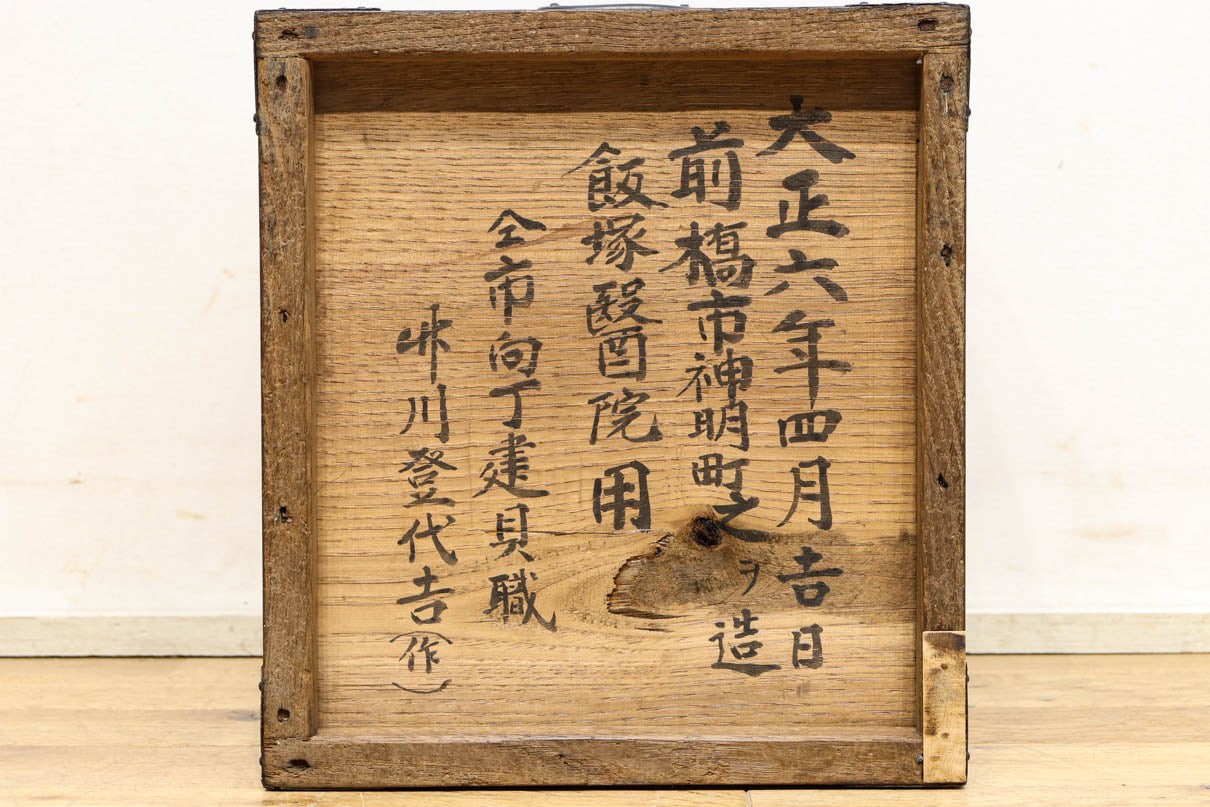 大正六年四月吉日
前橋市神明町之ヲ造
飯塚醫院用
仝市向丁建具職
川登代吉(作)